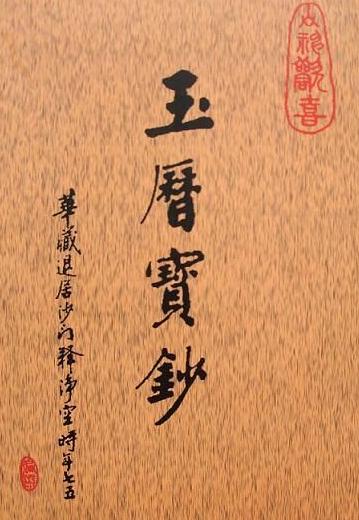 神歡喜
玉曆寶鈔
華藏退居沙門釋淨空時年七五